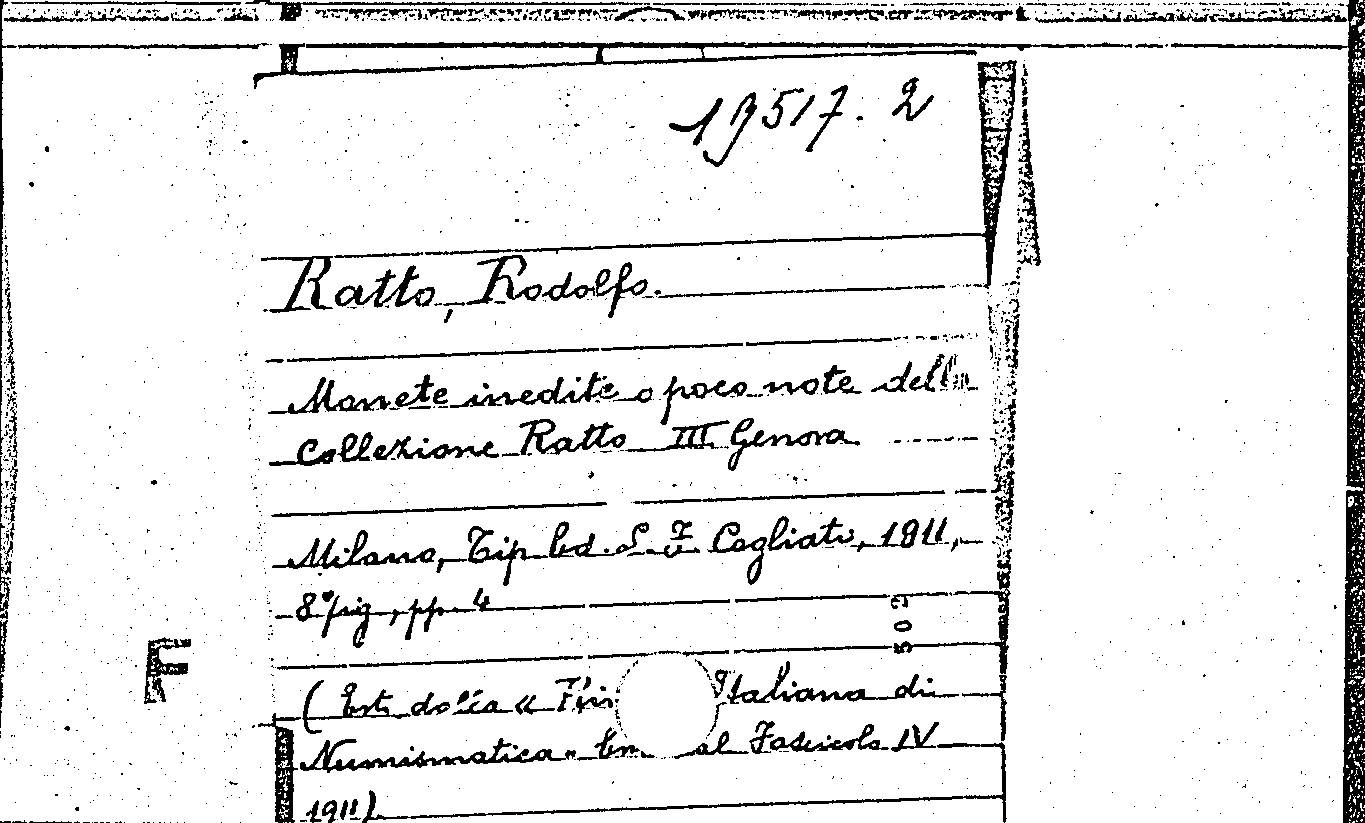 19517. 2
Ratto, Rodolfo.
Monete inedite o poco note della
Collezione Ratto III Genova
Milano, Tip. Ed. L. F. Cogliati, 1911,
8° fig., pp. 4
502
F
( Estr. dalla « Italiana di
Numismatica » Fascicolo IV
1911).